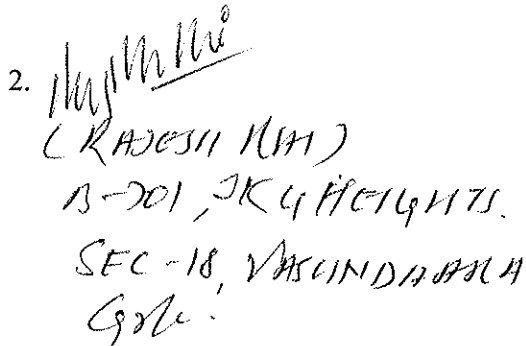 2.
(RAJESH RAI)
B-701, JKG HEIGHTS.
SEC-18, VASUNDHARA